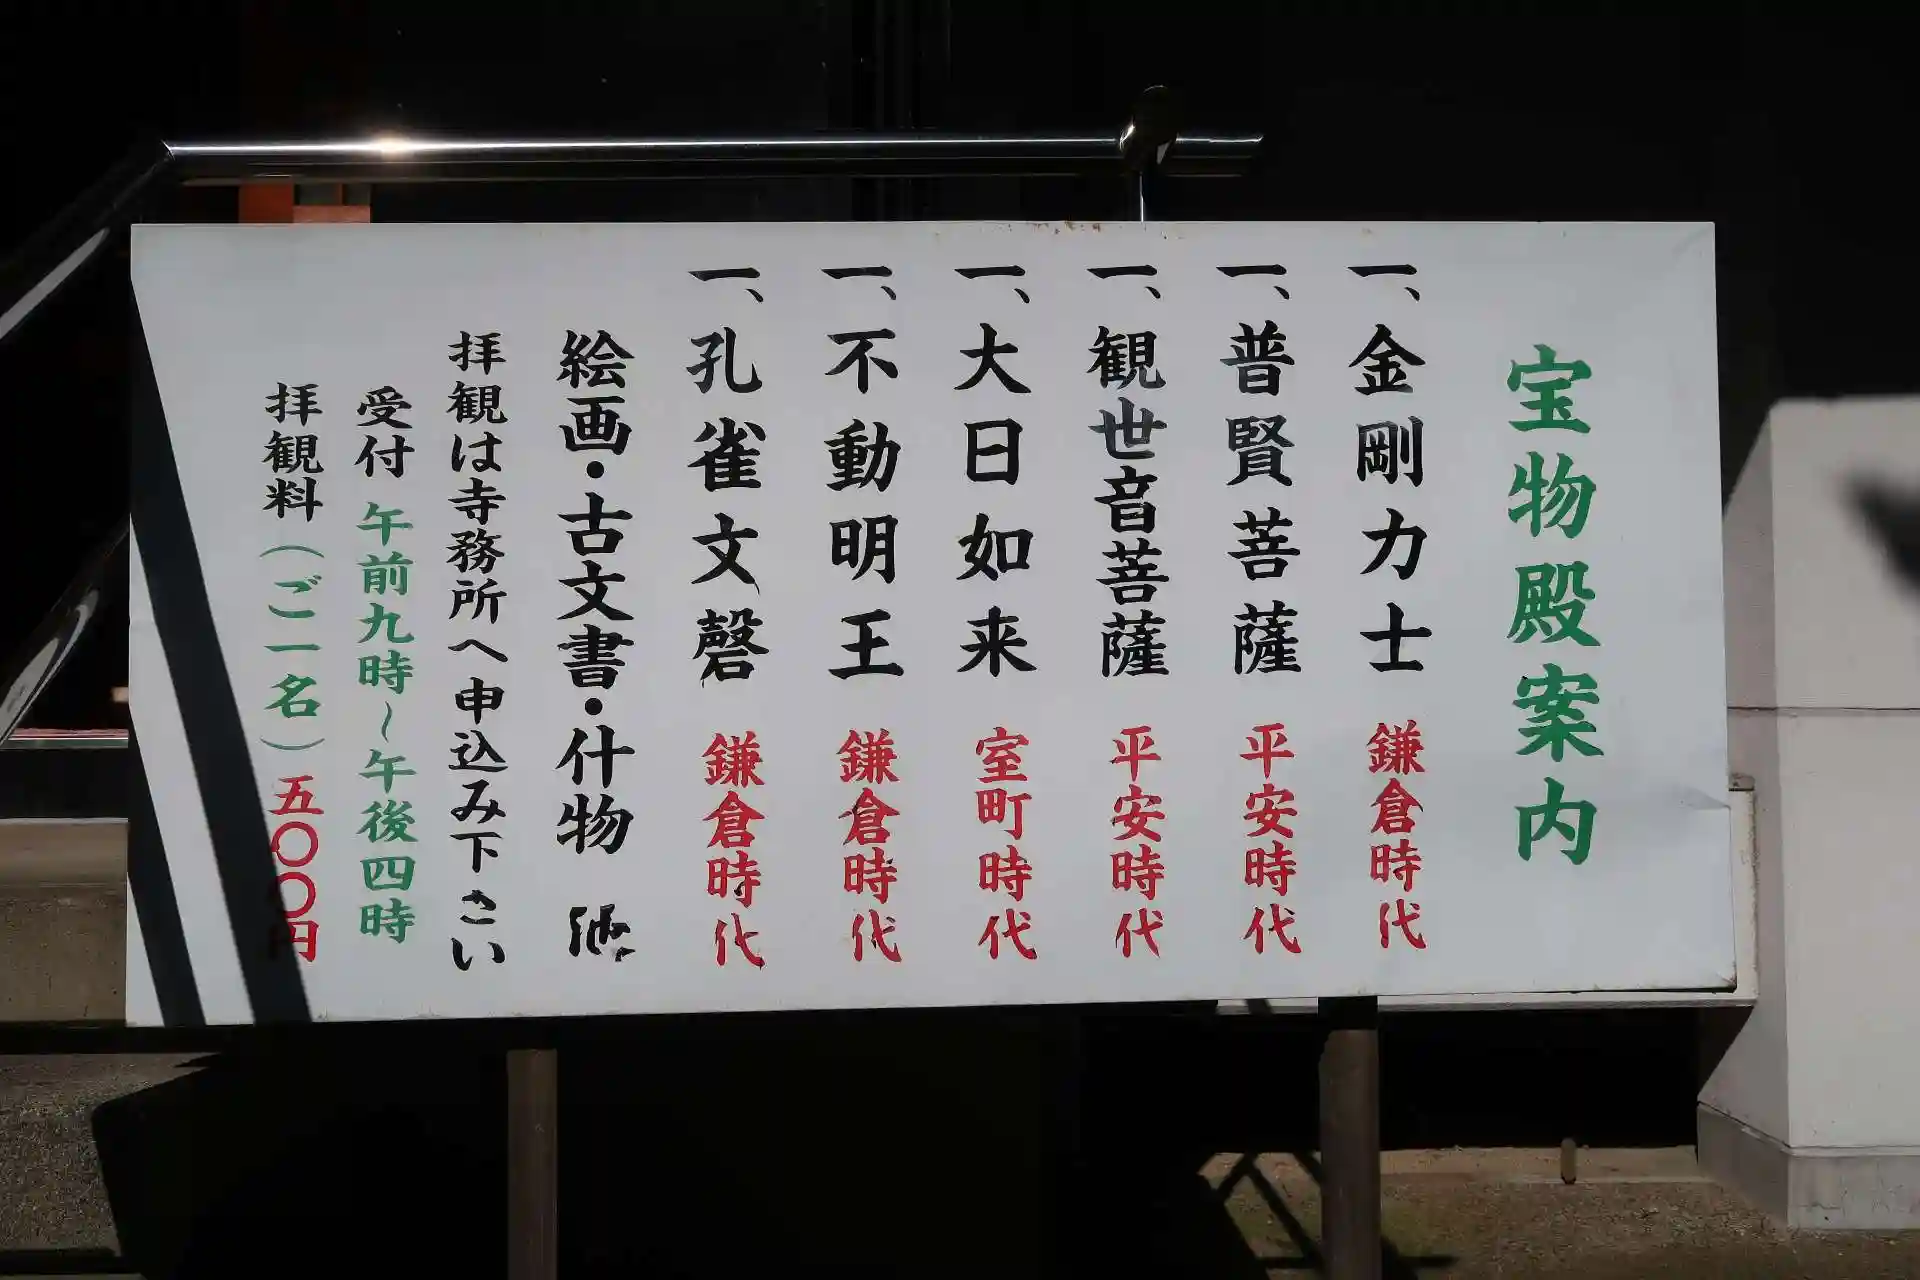 宝物殿案内
一、金剛力士 鎌倉時代
一、普賢菩薩 平安時代
一、観世音菩薩 平安時代
一、大日如来 室町時代
一、不動明王 鎌倉時代
一、孔雀文磬 鎌倉時代
絵画・古文書・什物 他
拝観は寺務所へ申込み下さい
受付 午前九時~午後四時
拝観料(ご一名)五〇〇円